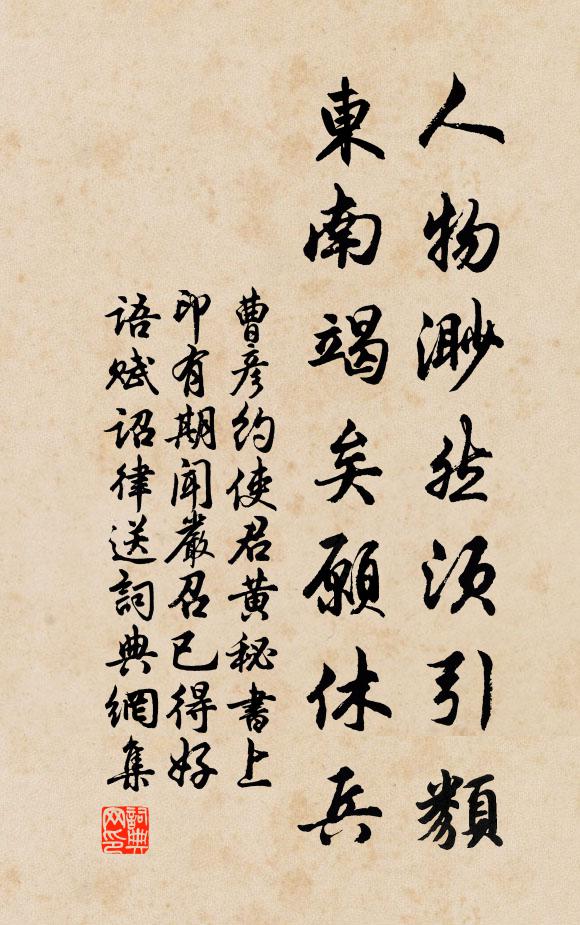 人物渺然須引類
東南竭矣願休兵
曹彦約使君黄秘書上
印有期聞嚴召已得好
语赋诏律送詞典網集
詞典
网印